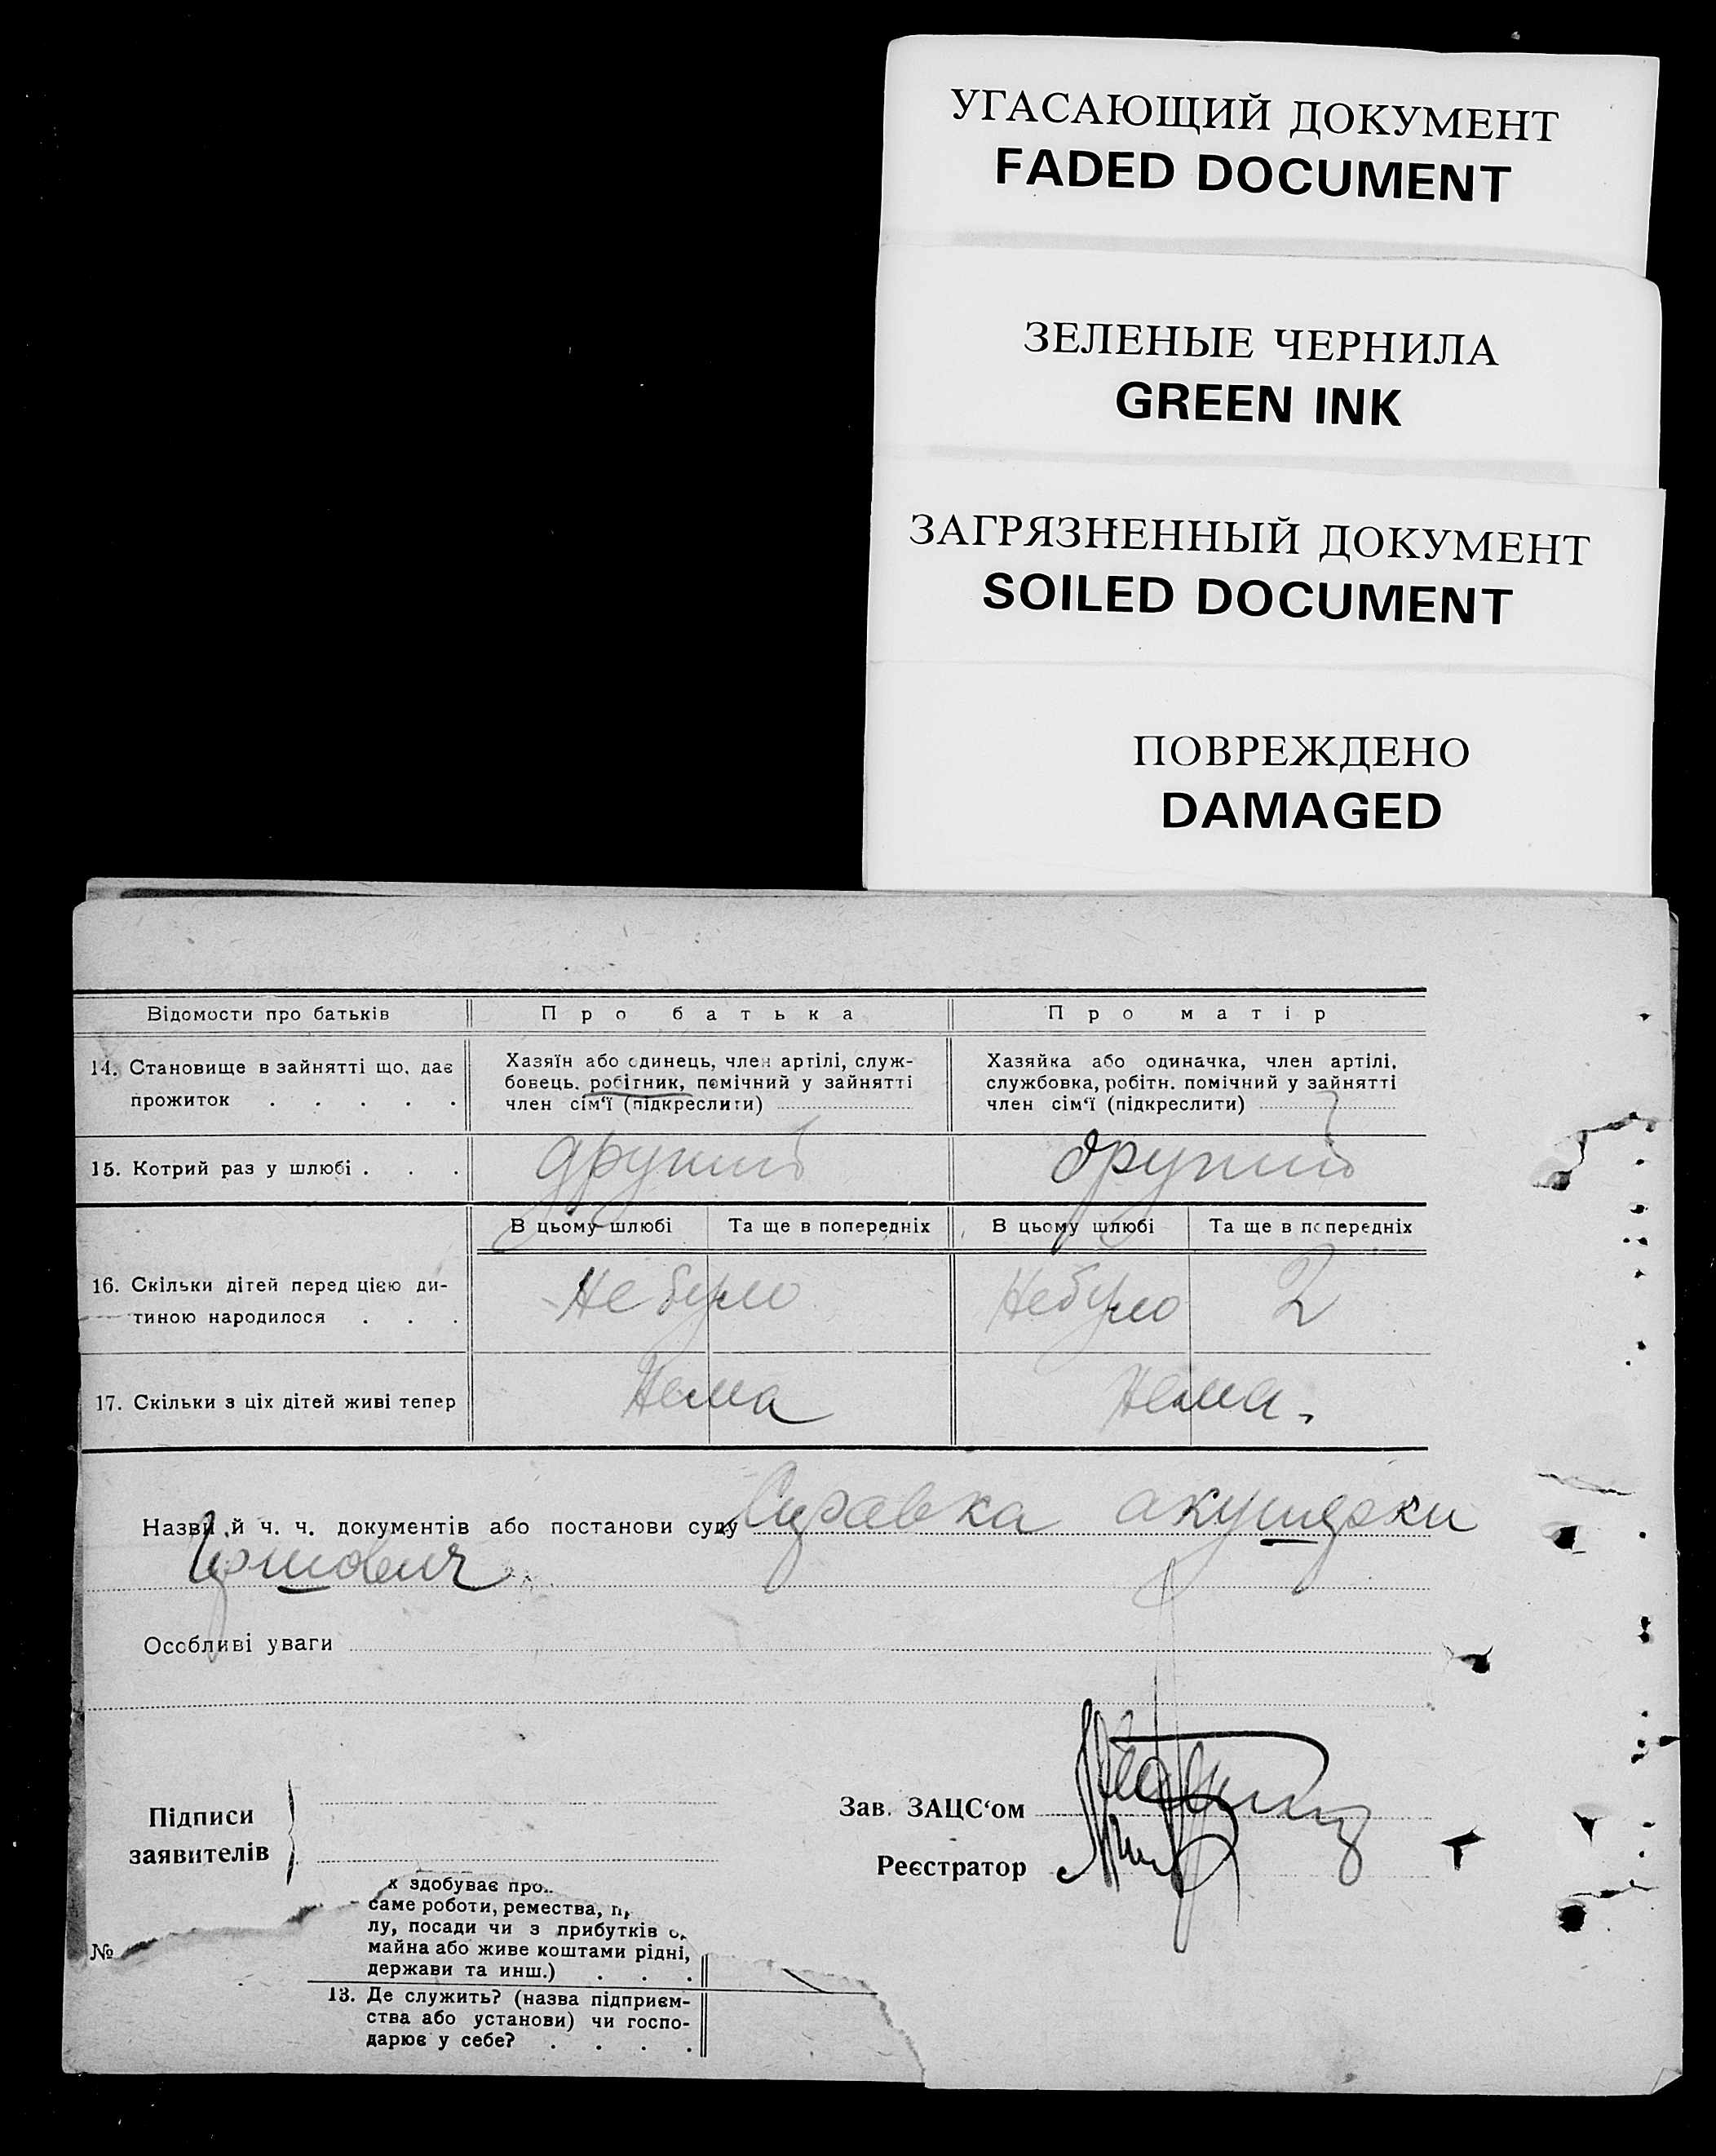 УГАСАЮЩИЙ ДОКУМЕНТ
FADED DOCUMENT
ЗЕЛЕНЫЕ ЧЕРНИЛА
GREEN INK
ЗАГРЯЗНЕННЫЙ ДОКУМЕНТ
SOILED DOCUMENT
ПОВРЕЖДЕНО
DAMAGED
Відомости про батьків
Про батька
Про матір
14. Становище в зайнятті що, дає
прожиток . . . . .
Хазяїн або одинець, член артілі, служ-
бовець. робітник, помічний у зайнятті
член сім‘ї (підкреслити)
Хазяйка або одиначка, член артілі,
службовка, робітн. помічний у зайнятті
член сім‘ї (підкреслити)
15. Котрий раз у шлюбі . . .
другий
другий
В цьому шлюбі
Та ще в попередніх
В цьому шлюбі
Та ще в попередніх
16. Скільки дітей перед цією ди-
тиною народилося . . .
Не було
Не було
2
17. Скільки з ціх дітей живі тепер
Нема
Нема.
Назви й ч. ч. документів або постанови суду Справка акушерки
Особливі уваги
Підписи
заявителів
Зав. ЗАЦС‘ом
Реєстратор
№
здобуває
саме роботи, ремества,
лу, посади чи з прибутків
майна або живе коштами рідні,
держави та инш.) . . .
13. Де служить? (назва підприєм-
ства або установи) чи госпо-
дарює у себе? . . . .